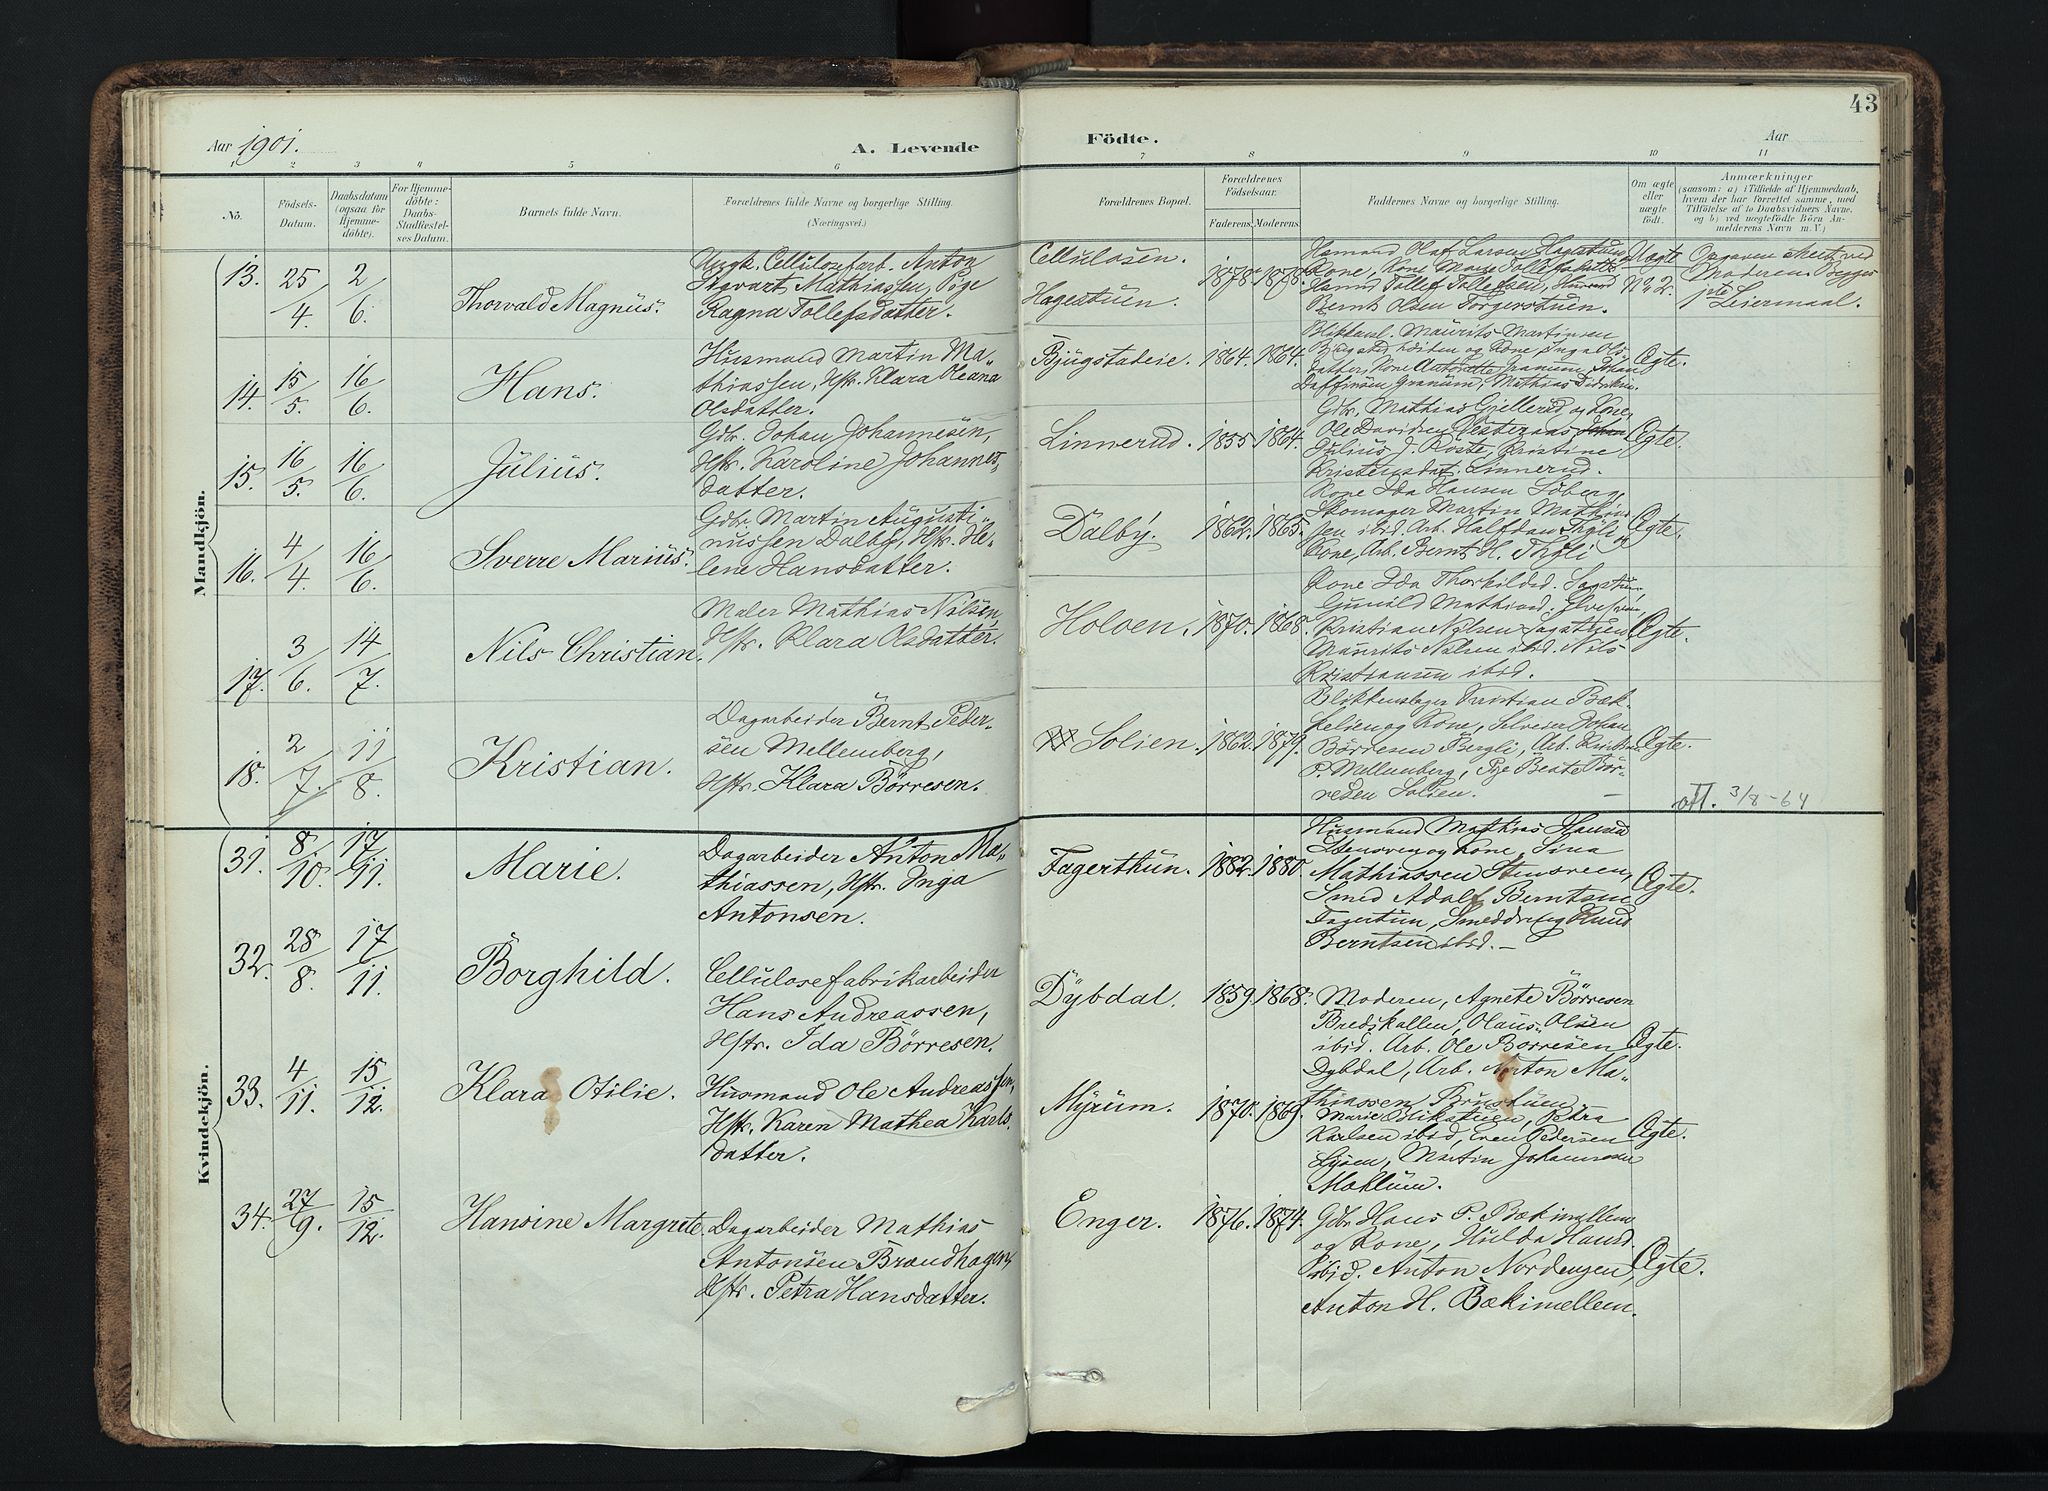 43
Aar 1901.
A. Levende
Födte.
Aar
1 2 3 4 5 6 7 8 9 10 11
No.
Födsels-
Datum.
Daabsdatum
(ogsaa for
Hjemme-
döbte).
For Hjemme-
döbte:
Daabs-
Stadfæstel-
ses Datum.
Barnets fulde Navn.
Forældrenes fulde Navne og borgerlige Stilling.
(Næringsvei.)
Forældrenes Bopæl.
Forældrenes
Födselsaar.
Faderens. Moderens.
Faddernes Navne og borgerlige Stilling.
Om ægte
eller
uægte
födt.
Anmærkninger
(saasom: a) i Tilfælde af Hjemmedaab,
hvem der har forrettet samme, med
Tilföielse af to Daabsvidners Navne,
og b) ved uægtefödte Börn An-
melderens Navn m. V.)
Mandkjön.
13. 25/4 2/6 Thorvald Magnus.
Ungk. Cellulosefarb. Anton
Sigvart Mathiassen, Pige
Ragna Tollefsdatter.
Cellulosen.
Hagestuen.
1878. 1878.
Olaf Larsen Hagestuen
Kone, Kone
Tollef Tollefsen,
Bernt Olsen Torgerstuen.
Uægte
No 2.
Opgaven skeet ved
Moderen. Begges
1ste Leiermaal.
14. 15/5 16/6 Hans.
Husmand Martin Ma-
thiassen, Hstr. Klara Oleana
Olsdatter.
Bjugstadeie. 1864. 1864.
Maurits Martinsen
og Kone, Inga Ols-
datter, Kone Antonette Granum, Johan
Daffinsen Granum, Mathias Didriksen.
Ægte.
15. 16/5 16/6 Julius.
Gdbr. Johan Johannesen,
Hstr. Karoline Johannes-
datter.
Linnerud. 1855. 1864.
Gdbr. Mathias Gjellerud og Kone,
Ole Davidsen Vesteraas
Julius J. Roste, Kristine
Kristensdat. Linnerud.
Ægte.
16. 4/4 16/6 Sverre Marius.
Gdbr. Martin Augusti-
nussen Dalby, Hstr. He-
lene Hansdatter.
Dalby. 1862. 1865.
Kone Ida Hansen Söberg,
Skomager Martin Mathias-
sen ibid. Arb. Halfdan Thyli og
Kone, Arb. Bernt H. Thyli
Ægte.
17. 3/6 14/7 Nils Christian.
Maler Mathias Nilsen,
Hstr. Klara Olsdatter.
Holoen. 1870. 1868.
Kone Ida Thorkildsd. Sagstuen,
Gunild Mathisd.
Kristian Nilsen Sagstuen,
Maurits Nilsen ibid. Nils
Kristiansen ibid.
Ægte.
18. 2/7 11/8 Kristian.
Dagarbeider Bernt Peder-
sen Mellemberg,
Hstr. Klara Børresen.
Solien. 1862. 1879.
Blikkenslager Kristian Bæk-
kelien og Kone, Selveier Johan
Børresen Bergli, Arb. Kristian
P. Mellemberg, Pige Beate Bør-
resen Solien.
Ægte.
att. 3/8-64
Kvindekjön.
31. 8/10. 17/11. Marie.
Dagarbeider Anton Ma-
thiassen, Hstr. Inga
Antonsen.
Fagerthun. 1882. 1880.
Husmand Mathias Hansen
Stensveen og Kone, Sina
Mathiassen Stensveen,
Smed Adolf Berntsen
Fagertun, Smeddreng Knud
Berntsen ibid. —
Ægte.
32. 28/8. 17/11. Borghild.
Cellulosefabrikarbeider
Hans Andreassen,
Hstr. Ida Børresen.
Dybdal. 1859. 1868.
Moderen, Agnete Børresen
Bredskallen, Olaus Olsen
ibid. Arb. Ole Børresen
Dybdal, Arb. Anton Ma-
thiassen Brustuen.
Ægte.
33. 4/11. 15/12. Klara Otilie.
Husmand Ole Andreassen,
Hstr. Karen Mathea Karls-
datter.
Myrum. 1870. 1869.
Marie Blikstuen, Petra
Karlsen ibid, Even Pedersen
Lysen, Martin Johannesen
Mæhlum.
Ægte.
34. 27/9. 15/12. Hansine Margrete
Dagarbeider Mathias
Antonsen Brandhagen,
Hstr. Petra Hansdatter.
Enger. 1876. 1874.
Gdbr Hans P. Bækimellem
og Kone, Hulda Hansd.
ibid. Anton Nordengen,
Anton H. Bækimellem.
Ægte.